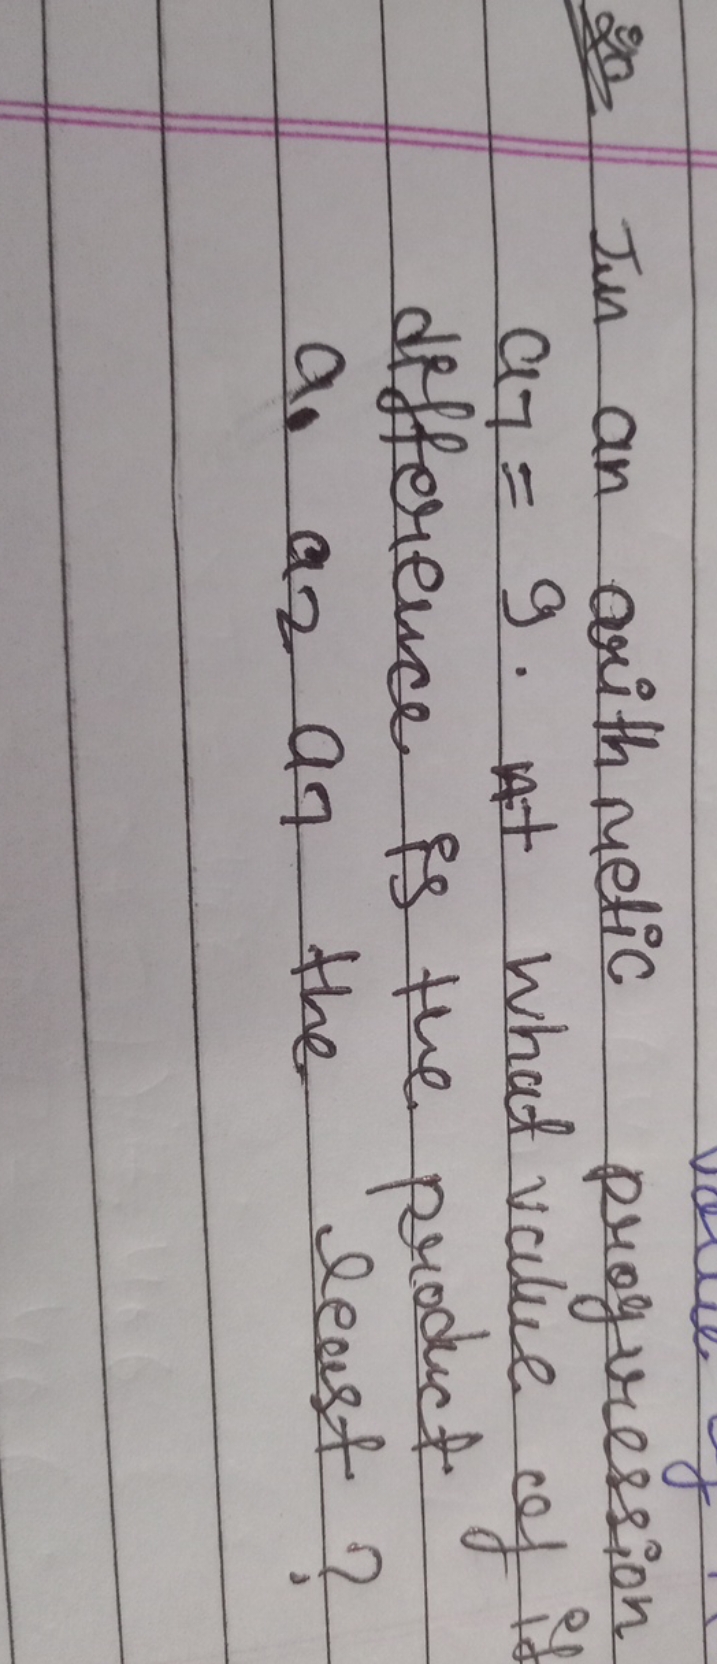 20 In an arithmetic progression if
a7 = 9. At what value of
difference is the product
a1 a2 a7 the least ?